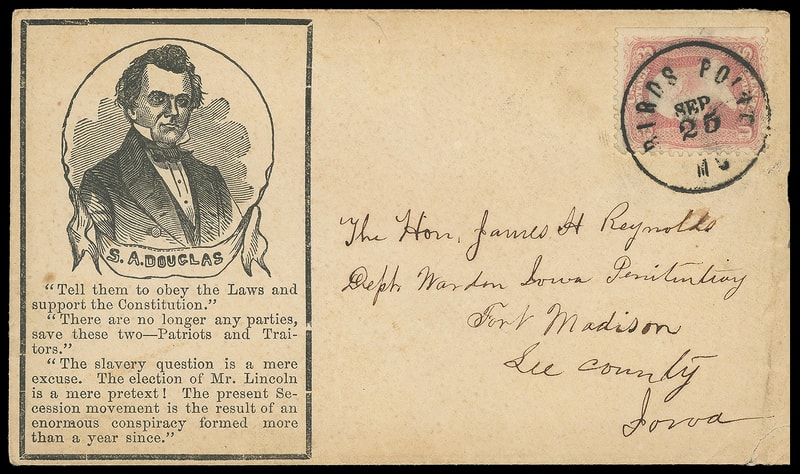 S. A. DOUGLAS
“Tell them to obey the Laws and
support the Constitution.”
“There are no longer any parties,
save these two—Patriots and Trai-
tors.”
“The slavery question is a mere
excuse. The election of Mr. Lincoln
is a mere pretext! The present Se-
cession movement is the result of an
enormous conspiracy formed more
than a year since.”
BIRDS POINT
SEP
25
MO
The Hon. James H Reynolds
Dept Warden Iowa Penitentiary
Fort Madison
Lee County
Iowa